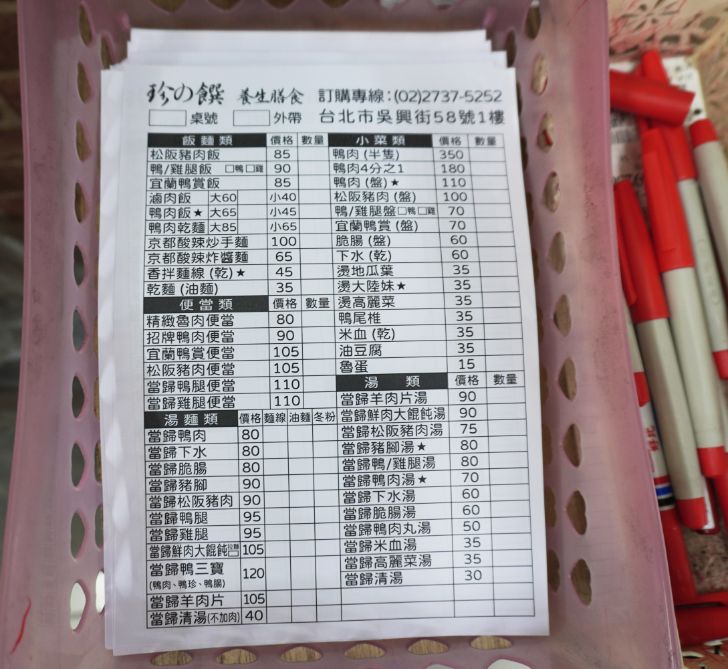 珍の饌 養生膳食 訂購專線:(02)2737-5252
桌號 外帶 台北市吳興街58號1樓
飯麵類 價格 數量
松阪豬肉飯 85
鴨/雞腿飯 □鴨□雞 90
宜蘭鴨賞飯 85
滷肉飯 大60 小40
鴨肉飯★ 大65 小45
鴨肉乾麵 大85 小65
京都酸辣炒手麵 100
京都酸辣炸醬麵 65
香拌麵線(乾)★ 45
乾麵(油麵) 35
便當類 價格 數量
精緻魯肉便當 80
招牌鴨肉便當 90
宜蘭鴨賞便當 105
松阪豬肉便當 105
當歸鴨腿便當 110
當歸雞腿便當 110
湯麵類 價格 麵線 油麵 冬粉
當歸鴨肉 80
當歸下水 80
當歸脆腸 80
當歸豬腳 90
當歸松阪豬肉 90
當歸鴨腿 95
當歸雞腿 95
當歸鮮肉大餛飩 105
當歸鴨三寶 120
(鴨肉、鴨珍、鴨腸)
當歸羊肉片 105
當歸清湯(不加肉) 40
小菜類 價格 數量
鴨肉(半隻) 350
鴨肉4分之1 180
鴨肉(盤)★ 110
松阪豬肉(盤) 100
鴨/雞腿盤□鴨□雞 70
宜蘭鴨賞(盤) 70
脆腸(盤) 60
下水(乾) 60
燙地瓜葉 35
燙大陸妹★ 35
燙高麗菜 35
鴨尾椎 35
米血(乾) 35
油豆腐 35
魯蛋 15
湯類 價格 數量
當歸羊肉片湯 90
當歸鮮肉大餛飩湯 90
當歸松阪豬肉湯 75
當歸豬腳湯★ 80
當歸鴨/雞腿湯 80
當歸鴨肉湯★ 70
當歸下水湯 60
當歸脆腸湯 60
當歸鴨肉丸湯 50
當歸米血湯 35
當歸高麗菜湯 35
當歸清湯 30